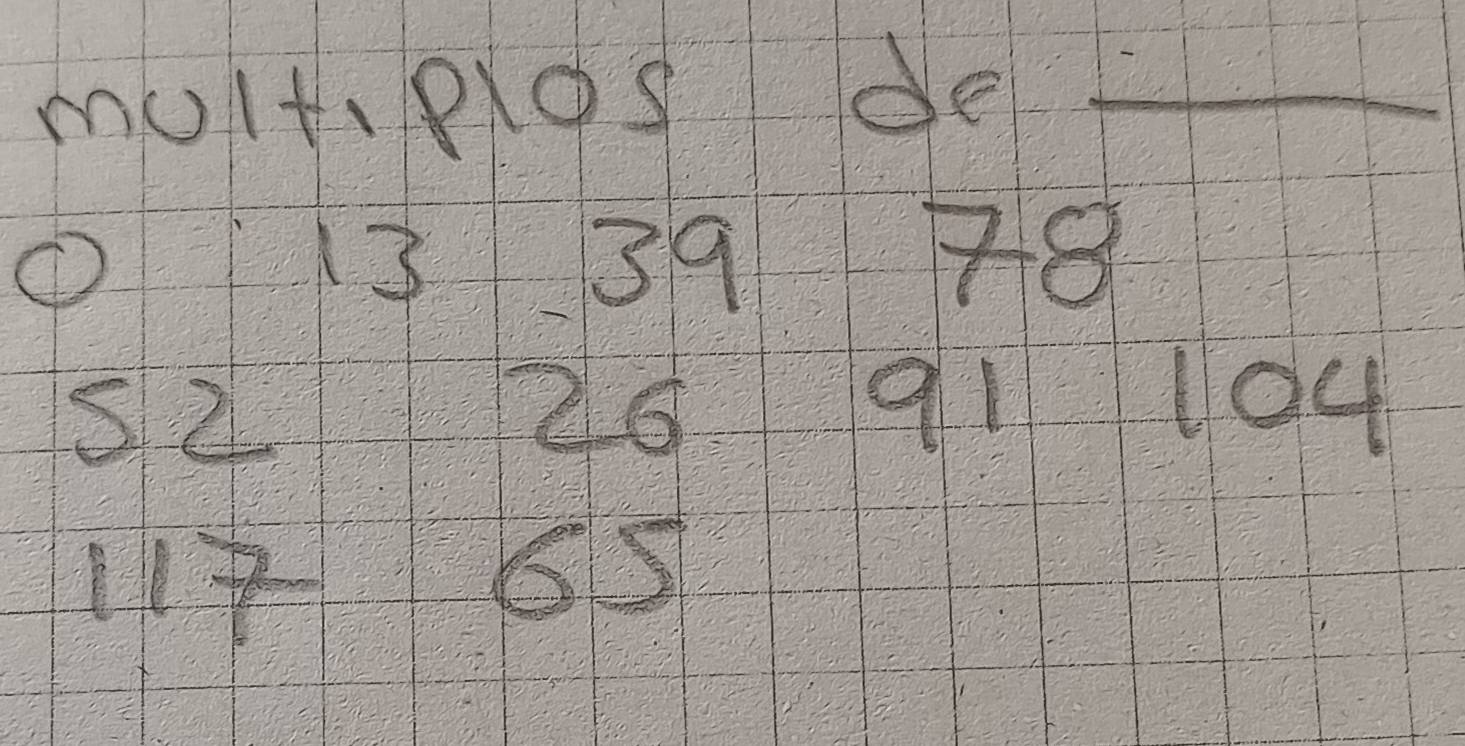 multiplos de ____
0 13 39 78
52 26 91 104
117 65